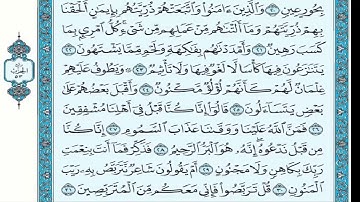 بِحُورٍ عِينٍ ٢٠ وَالَّذِينَ ءَامَنُوا وَاتَّبَعَتْهُمْ ذُرِّيَّتُهُم بِإِيمَٰنٍ أَلْحَقْنَا
بِهِمْ ذُرِّيَّتَهُمْ وَمَا أَلَتْنَٰهُم مِّنْ عَمَلِهِم مِّن شَيْءٍ كُلُّ امْرِئٍ بِمَا
كَسَبَ رَهِينٌ ٢١ وَأَمْدَدْنَٰهُم بِفَٰكِهَةٍ وَلَحْمٍ مِّمَّا يَشْتَهُونَ ٢٢
يَتَنَٰزَعُونَ فِيهَا كَأْسًا لَّا لَغْوٌ فِيهَا وَلَا تَأْثِيمٌ ٢٣ وَيَطُوفُ عَلَيْهِمْ
غِلْمَانٌ لَّهُمْ كَأَنَّهُمْ لُؤْلُؤٌ مَّكْنُونٌ ٢٤ وَأَقْبَلَ بَعْضُهُمْ عَلَىٰ
بَعْضٍ يَتَسَاءَلُونَ ٢٥ قَالُوا إِنَّا كُنَّا قَبْلُ فِي أَهْلِنَا مُشْفِقِينَ
٢٦ فَمَنَّ اللَّهُ عَلَيْنَا وَوَقَىٰنَا عَذَابَ السَّمُومِ ٢٧ إِنَّا كُنَّا
مِن قَبْلُ نَدْعُوهُ إِنَّهُ هُوَ الْبَرُّ الرَّحِيمُ ٢٨ فَذَكِّرْ فَمَا أَنتَ بِنِعْمَتِ
رَبِّكَ بِكَاهِنٍ وَلَا مَجْنُونٍ ٢٩ أَمْ يَقُولُونَ شَاعِرٌ نَّتَرَبَّصُ بِهِ رَيْبَ
الْمَنُونِ ٣٠ قُلْ تَرَبَّصُوا فَإِنِّي مَعَكُم مِّنَ الْمُتَرَبِّصِينَ ٣١